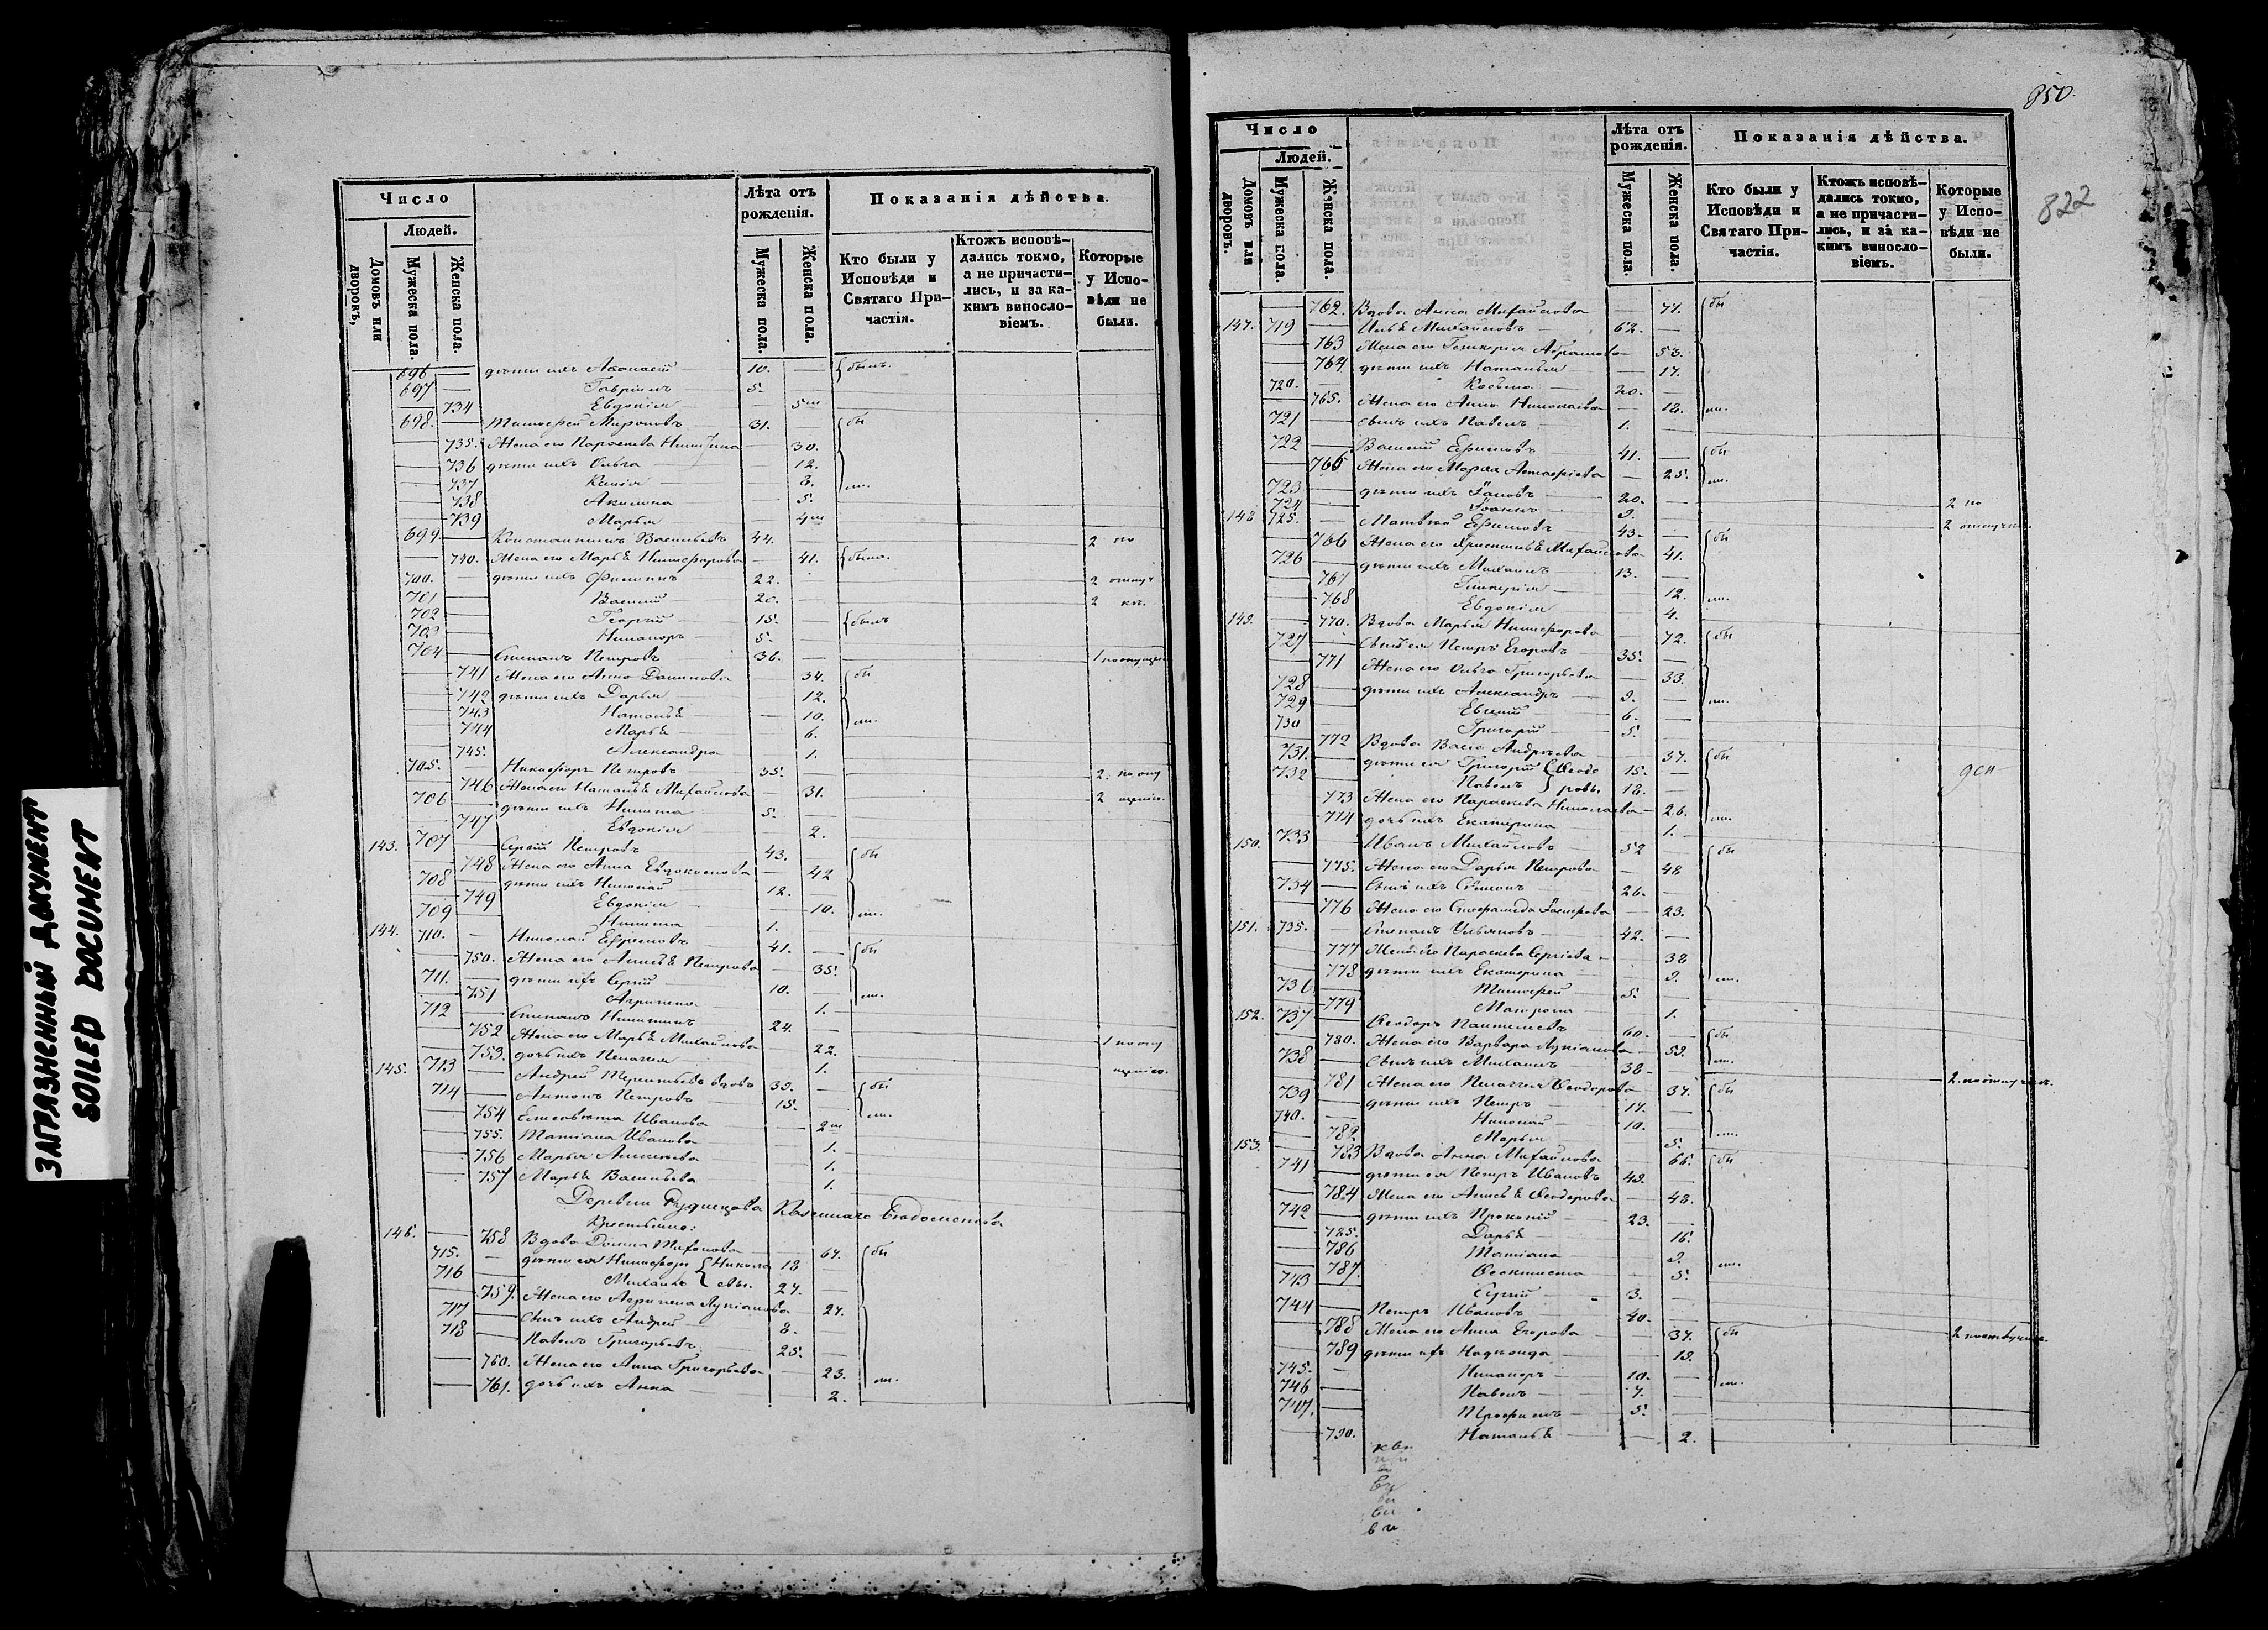 ЗАГРАЗНЕННЫЙ ДОКУМЕНТ
SOILED DOCUMENT
Число
Людей.
Домовъ или дворовъ,
Мужеска пола.
Женска пола.
Лѣта отъ рожденія.
Мужеска пола.
Женска пола.
Показанія дѣйства.
Кто были у Исповѣди и Святаго Причастія.
Ктожъ исповѣдались токмо, а не причастились, и за какимъ винословіемъ.
Которые у Исповѣди не были.
696 дѣти ихъ Аѳанасій 10. былъ
697 Гавріилъ 5.
734 Евдокія 5
698. Тимоѳей Мироновъ 31. бы
735. Жена его Параскева 30.
736 дѣти ихъ Ольга 12.
737 Ксенія 8. ли.
738 Акилина 5.
739 Марья 4
699 Константинъ Васильевъ 44. 2 по
740. Жена его Марья Никифорова 41. была.
700. дѣти ихъ Филиппъ 22. 2 отлуч
701 Василій 20. 2
702 Георгій 15. былъ
703 Никаноръ 5.
704 Степанъ Петровъ 36. 1
741 Жена его Анна 34. бы
742 дѣти ихъ Дарья 12.
743 Наталья 10. ли.
744 Марья 6.
745. Александра 1.
705. Никифоръ Петровъ 35. 2. по отлу
746 Жена его Наталья Михайлова 31. 2
706 дѣти ихъ Никита 5.
747 Евдокія 2.
143. 707 Сергій Петровъ 43. бы
748 Жена его Анна Евдокимова 42
708 дѣти ихъ Николай 12.
749 Евдокія 10. ли.
709 Никита 1.
144. 710. Николай Ефремовъ 41. бы
750. Жена его Анисья Петрова 35.
711. дѣти ихъ Сергій 10. ли.
751 Агрипена 1.
712 Степанъ Никитинъ 24.
752 Жена его Марья Михайлова 22. 1 по отлу
753. дочь ихъ Пелагея 1.
145. 713 Андрей Терентьевъ вдовъ 39. бы
714 Антонъ Петровъ 15. ли.
754 Елисавета Иванова 2
755. Татіана Иванова 1.
756 Марья Алексѣева 1.
757 Марья Васильева 1.
Деревни Казеннаго вѣдомства
Крестьяне:
146. 758 Вдова 67. бы
715. дѣти ея Никифоръ Никола 18
716 Михаилъ евы. 27.
759. Жена его Агрипена Лукіанова 27.
717 Сынъ ихъ Андрей 8.
718 Павелъ Григорьевъ 25.
760. Жена его Анна Григорьева 23. ли.
761. дочь ихъ Анна 2.
850.
822
Число
Людей.
Домовъ или дворовъ.
Мужеска пола.
Женска пола.
Лѣта отъ рожденія.
Мужеска пола.
Женска пола.
Показанія дѣйства.
Кто были у Исповѣди и Святаго Причастія.
Ктожъ исповѣдались токмо, а не причастились, и за какимъ винословіемъ.
Которые у Исповѣди не были.
762. Вдова Анна Михайлова 71. бы
147. 719 Илья Михайловъ 62.
763 Жена его Гликерія 53.
764 дѣти ихъ Наталья 17.
720. Козьма 20.
765. Жена его Анна Николаева 18. ли.
721 сынъ ихъ Павелъ 1.
722 Василій Ефимовъ 41. бы
766 Жена его Марѳа 25. ли.
723 дѣти ихъ Іаковъ 20. 2 по
724 Іоаннъ 9. 2
148 725. Матвѣй Ефимовъ 43. бы
766 Жена его Христинья Михайлова 41.
726 дѣти ихъ Михаилъ 13.
767 Гликерія 12. ли.
768 Евдокія 4.
149. 770. Вдова Марья Никифорова 72. бы
727 Сынъ ея Петръ Егоровъ 35.
771 Жена его Ольга Григорьева 33.
728 дѣти ихъ Александръ 9. ли.
729 Евсевій 6.
730 Григорій 5.
772 Вдова Андрѣева 37. бы
731. дѣти ея Григорій Ѳеодо 15.
732 Павелъ ровы 18.
773 Жена его Параскева Николаева 26. ли.
774 дочь ихъ Екатерина 1.
150. 733 Иванъ Михайловъ 52 бы
775. Жена его Дарья Петрова 48
734 Сынъ ихъ Сѵмеонъ 26.
776 Жена его Степанида 23.
151. 735. Степанъ Ульяновъ 42.
777 Жена его Параскева Сергіева 38
778 дѣти ихъ Екатерина 9. ли.
736 Тимоѳей 5.
779 Матрона 1.
152. 737 Ѳеодоръ 60. бы
780. Жена его Варвара Лукіанова 59. ли.
738 Сынъ ихъ Михаилъ 38
781 Жена его Пелагея Ѳеодорова 37. бы
739 дѣти ихъ Петръ 17.
740. Николай 10. ли.
782 Марья 5.
153. 783 Вдова Анна Михайлова 66. бы
741 дѣти ея Петръ Ивановъ 49.
784 Жена его Анисья Ѳеодорова 48.
742 дѣти ихъ Прокопій 23.
785. Дарья 16.
786 Татіана 9. ли.
787. Ѳеоктиста 5.
743 Сергій 3.
744 Петръ Ивановъ 40.
788 Жена его Анна Егорова 37. бы
789 дѣти ихъ Надежда 13.
745. Никаноръ 10. ли.
746 Павелъ 7.
747. Трофимъ 5.
790. Наталья 2.